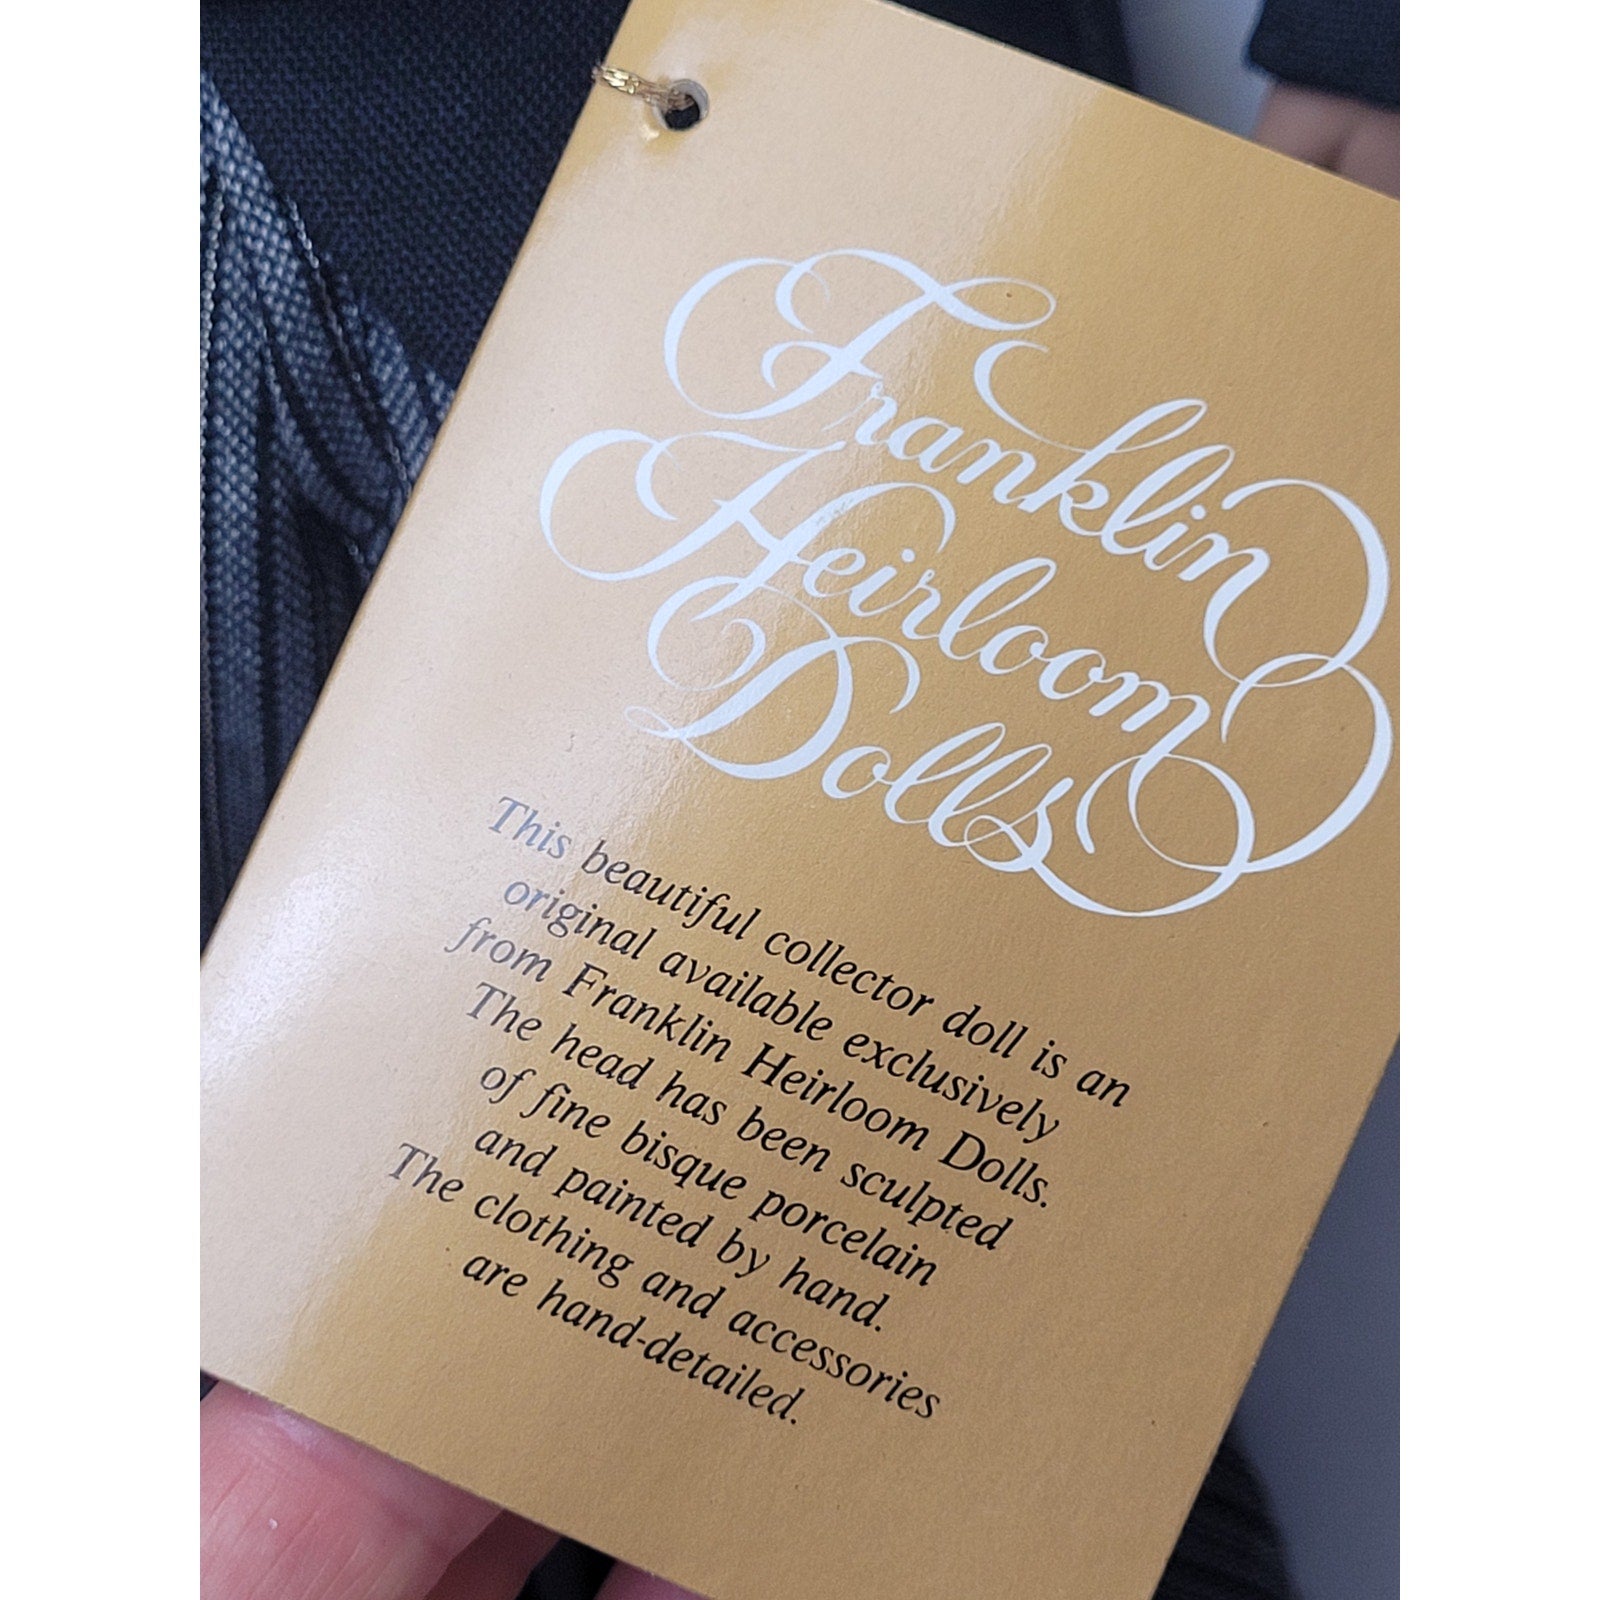 Franklin
Heirloom
Dolls
This beautiful collector doll is an
original available exclusively
from Franklin Heirloom Dolls.
The head has been sculpted
of fine bisque porcelain
and painted by hand.
The clothing and accessories
are hand-detailed.